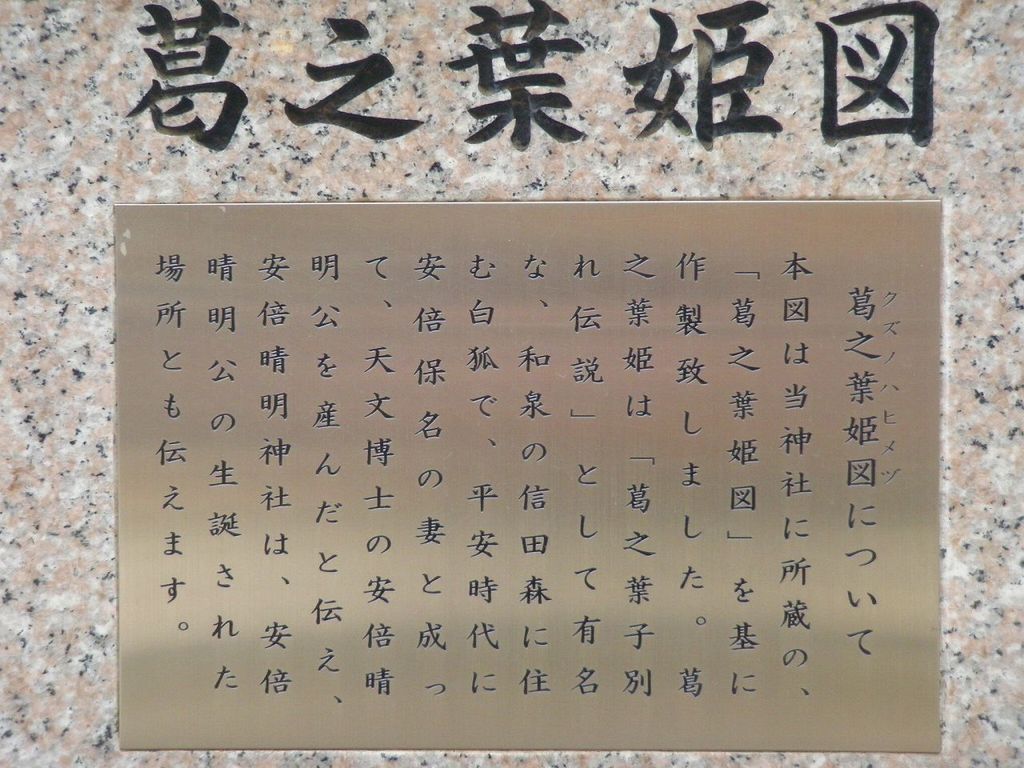 葛之葉姫図
葛之葉姫図について
クズノハヒメヅ
本図は当神社に所蔵の、
「葛之葉姫図」を基に
作製致しました。葛
之葉姫は「葛之葉子別
れ伝説」として有名
な、和泉の信田森に住
む白狐で、平安時代に
安倍保名の妻と成っ
て、天文博士の安倍晴
明公を産んだと伝え、
安倍晴明神社は、安倍
晴明公の生誕された
場所とも伝えます。